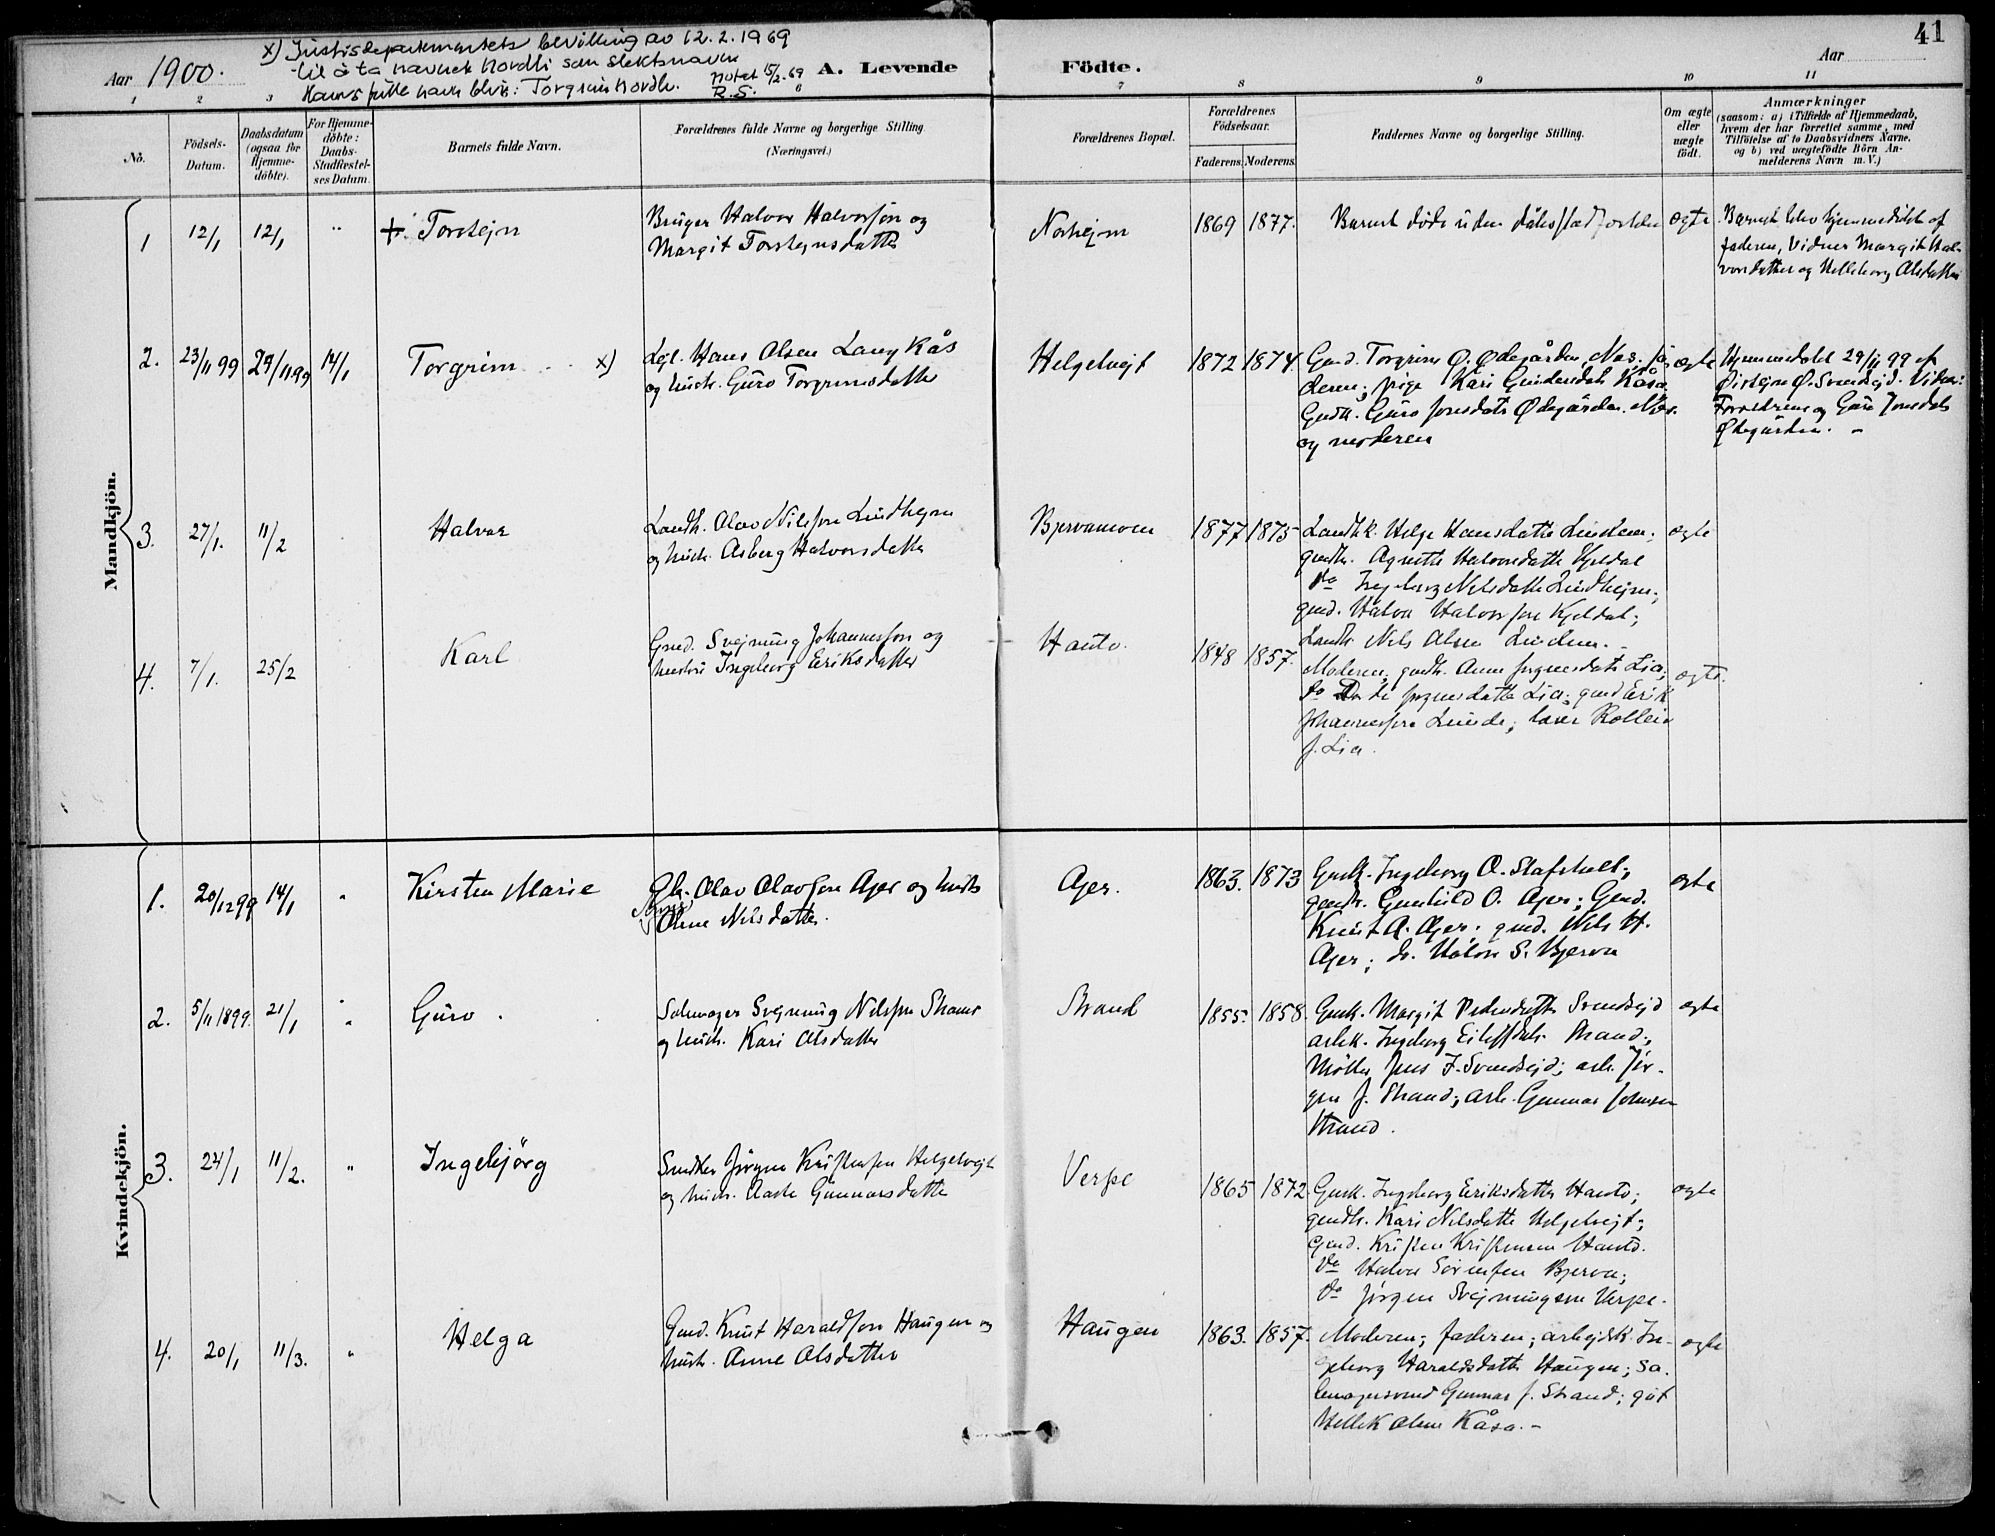 41
x) Justisdepartementets bevilling av 12.2.1969
til å ta navnet Nordli som slektsnavn
Hans fulle navn blir: Torgrim Nordli. Notert 15/2-69
R.S.
Aar 1900. A. Levende Födte. Aar
1 2 3 6 7 8 9 10 11
No.
Födsels-Datum.
Daabsdatum (ogsaa for Hjemme-döbte).
For Hjemme-döbte: Daabs-Stadfæstel-ses Datum.
Barnets fulde Navn.
Forældrenes fulde Navne og borgerlige Stilling.
(Næringsvei.)
Forældrenes Bopæl.
Forældrenes Födselsaar.
Faderens. Moderens.
Faddernes Navne og borgerlige Stilling.
Om ægte eller uægte födt.
Anmærkninger
(saasom: a) i Tilfælde af Hjemmedaab,
hvem der har forrettet samme, med
Tilföielse af to Daabsvidners Navne,
og b) ved uægtefödte Börn An-
melderens Navn m. V.)
Mandkjön.
1 12/1 12/1 " +. Torstejn
Bruger Halvor Halvorsson og
Margit Torstejnsdatter
1869 1877.
Barnet döde uden ægte
Barnet blev hjemmedöbt af
faderen, Vidner Margit Hal-
vorsdatter og Olsdatter
2. 23/11 99 29/11 99 14/1 Torgrim x)
Hans Olsen Lang Kås
og hustr. Guro Torgrimsdatter
Helgetvejt 1872 1874.
Gmd. Torgrim Ø. Ødegården, Nes. fa-
deren; pige Kari Kåsa.
Guro Jonsdatr Ødegården. Nes.
og moderen
ægte
Hjemmedöbt 29/11 99 af
Østejn Ø. Svendsejd. Vidner:
Forældrene og Guro Jonsdatr
Ødegården. -
3. 27/1. 11/2 Halvor
Landh. Olav Nilsson Lindhejm
og hustr. Asberg Halvorsdatter
Bjervamoen 1877 1875
Helge Hansdatter
gmdk. Agnethe Halvorsdatter Kjeldal
do Ingeborg Nilsdatter Lindhejm;
gmd. Halvor Halvorsson Kjeldal;
Nils Olsen
ægte
4. 7/1. 25/2 Karl
Gmd. Svejnung Johannesson og
hustru Ingeborg Eriksdatter
Hanto. 1848 1857.
Moderen; gmdk. Anne Lia;
Lia; gmd Erik
Johannesson Lunde;
J. Lia.
ægte.
Kvindekjön.
1. 20/12 99 14/1 " Kirsten Marie
Olav Olavson Ajer og hustr.
Olene Nilsdatter.
Ajer. 1863. 1873
Gmdk. Ingeborg O. Stafsholt;
gmdk. Gunhild O. Ajer; Gmd.
Knut A. Ajer; gmd. Nils H.
Ajer; do. Halvor S. Bjerva
ægte
2. 5/11 1899. 21/1 " Guro
Salmager Svejnung Nilsson Strand
og hustr. Kari Olsdatter
Strand 1855. 1858.
Gmdk. Margit Pedersdatter Svendsejd
arbk. Ingeborg Strand;
Möller Jens J. Svendsejd; arb. Jör-
gen J. Strand; arb. Gunnar Johnsen
Strand.
ægte
3. 24/1 11/2. " Ingebjörg
Snedker Jörgen Kristensen Helgetvejt
og hustr. Aaste Gunnarsdatter
Verpe 1865 1872.
Gmdk. Ingeborg Eriksdatter Hanto;
gmdk. Kari Nilsdatter Helgetvejt;
Gmd. Kristen Kristensen Hanto.
do Halvor Sörensen Bjerva;
do Jörgen Svejnungsen Verpe.
ægte
4. 20/1 11/3. " Helga
Gmd. Knut Haraldson Haugen og
hustr. Anne Olsdatter
Haugen 1863. 1857.
Moderen; faderen; arbejdsk. In-
geborg Haraldsdatter Haugen; Sa-
lmagersvend Gunnar J. Strand; gut
Hellek Olsen Kåsa. -
ægte